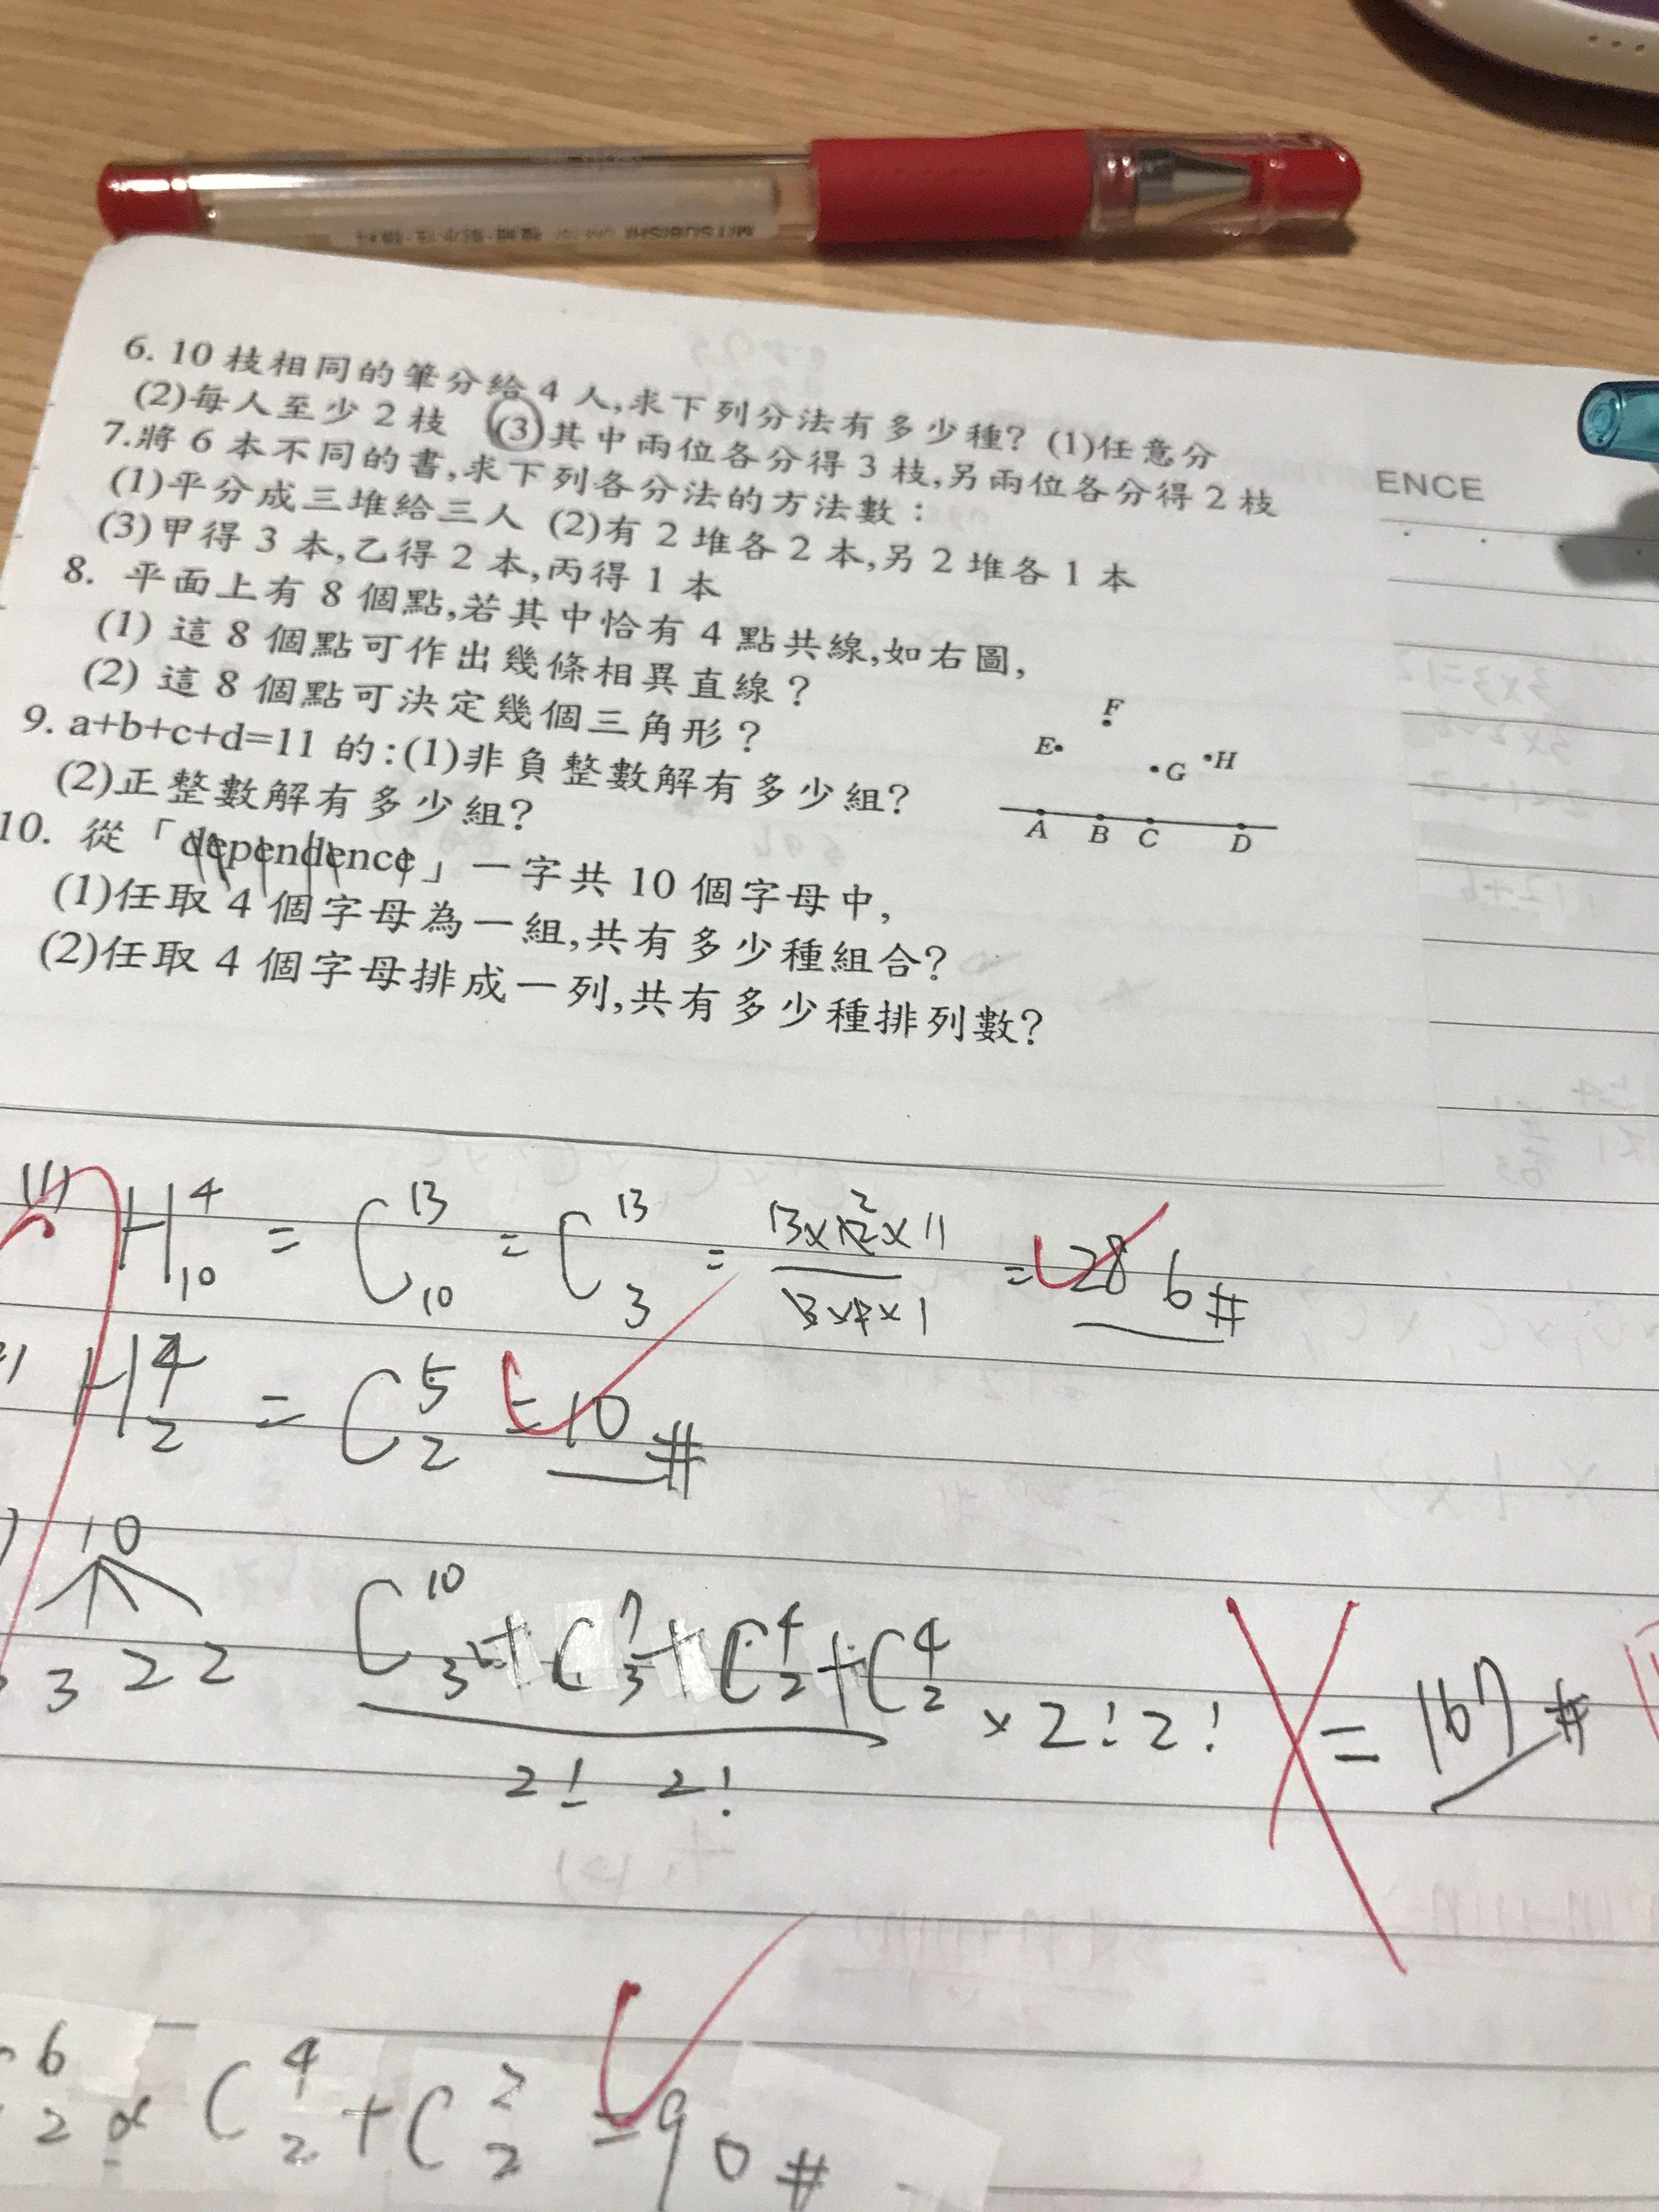 MITSUBISHI
6. 10 枝相同的筆分給 4 人,求下列分法有多少種? (1)任意分
(2)每人至少 2 枝 (3)其中兩位各分得 3 枝,另兩位各分得 2 枝
7.將 6 本不同的書,求下列各分法的方法數:
(1)平分成三堆給三人 (2)有 2 堆各 2 本,另 2 堆各 1 本
(3)甲得 3 本,乙得 2 本,丙得 1 本
8. 平面上有 8 個點,若其中恰有 4 點共線,如右圖,
(1) 這 8 個點可作出幾條相異直線?
(2) 這 8 個點可決定幾個三角形?
9. a+b+c+d=11 的:(1)非負整數解有多少組?
(2)正整數解有多少組?
10. 從「dependence」一字共 10 個字母中,
(1)任取 4 個字母為一組,共有多少種組合?
(2)任取 4 個字母排成一列,共有多少種排列數?
ENCE
F
E
H
G
A B C D
(1) H 4 10 = C 13 10 = C 13 3 = 13×12×11 / 3×2×1 = 286 #
H 4 2 = C 5 2 = 10 #
10
3 2 2
C 10 3 + C 7 3 + C 4 2 + C 4 2 / 2! 2! × 2! 2! = 167 #
6 2 × C 4 2 + C 2 2 = 90 #